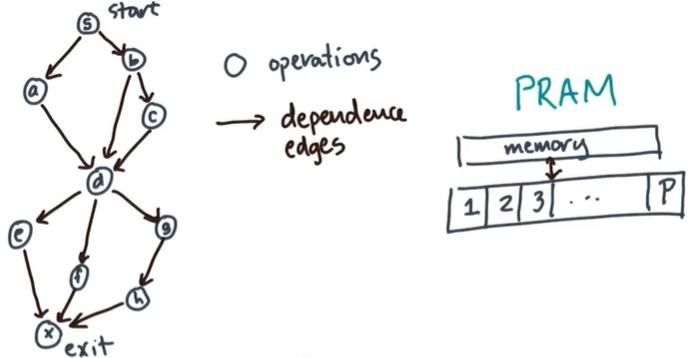 start
s
b
a
c
d
e
g
f
h
x
exit
operations
dependence
edges
PRAM
memory
1 2 3 ... P